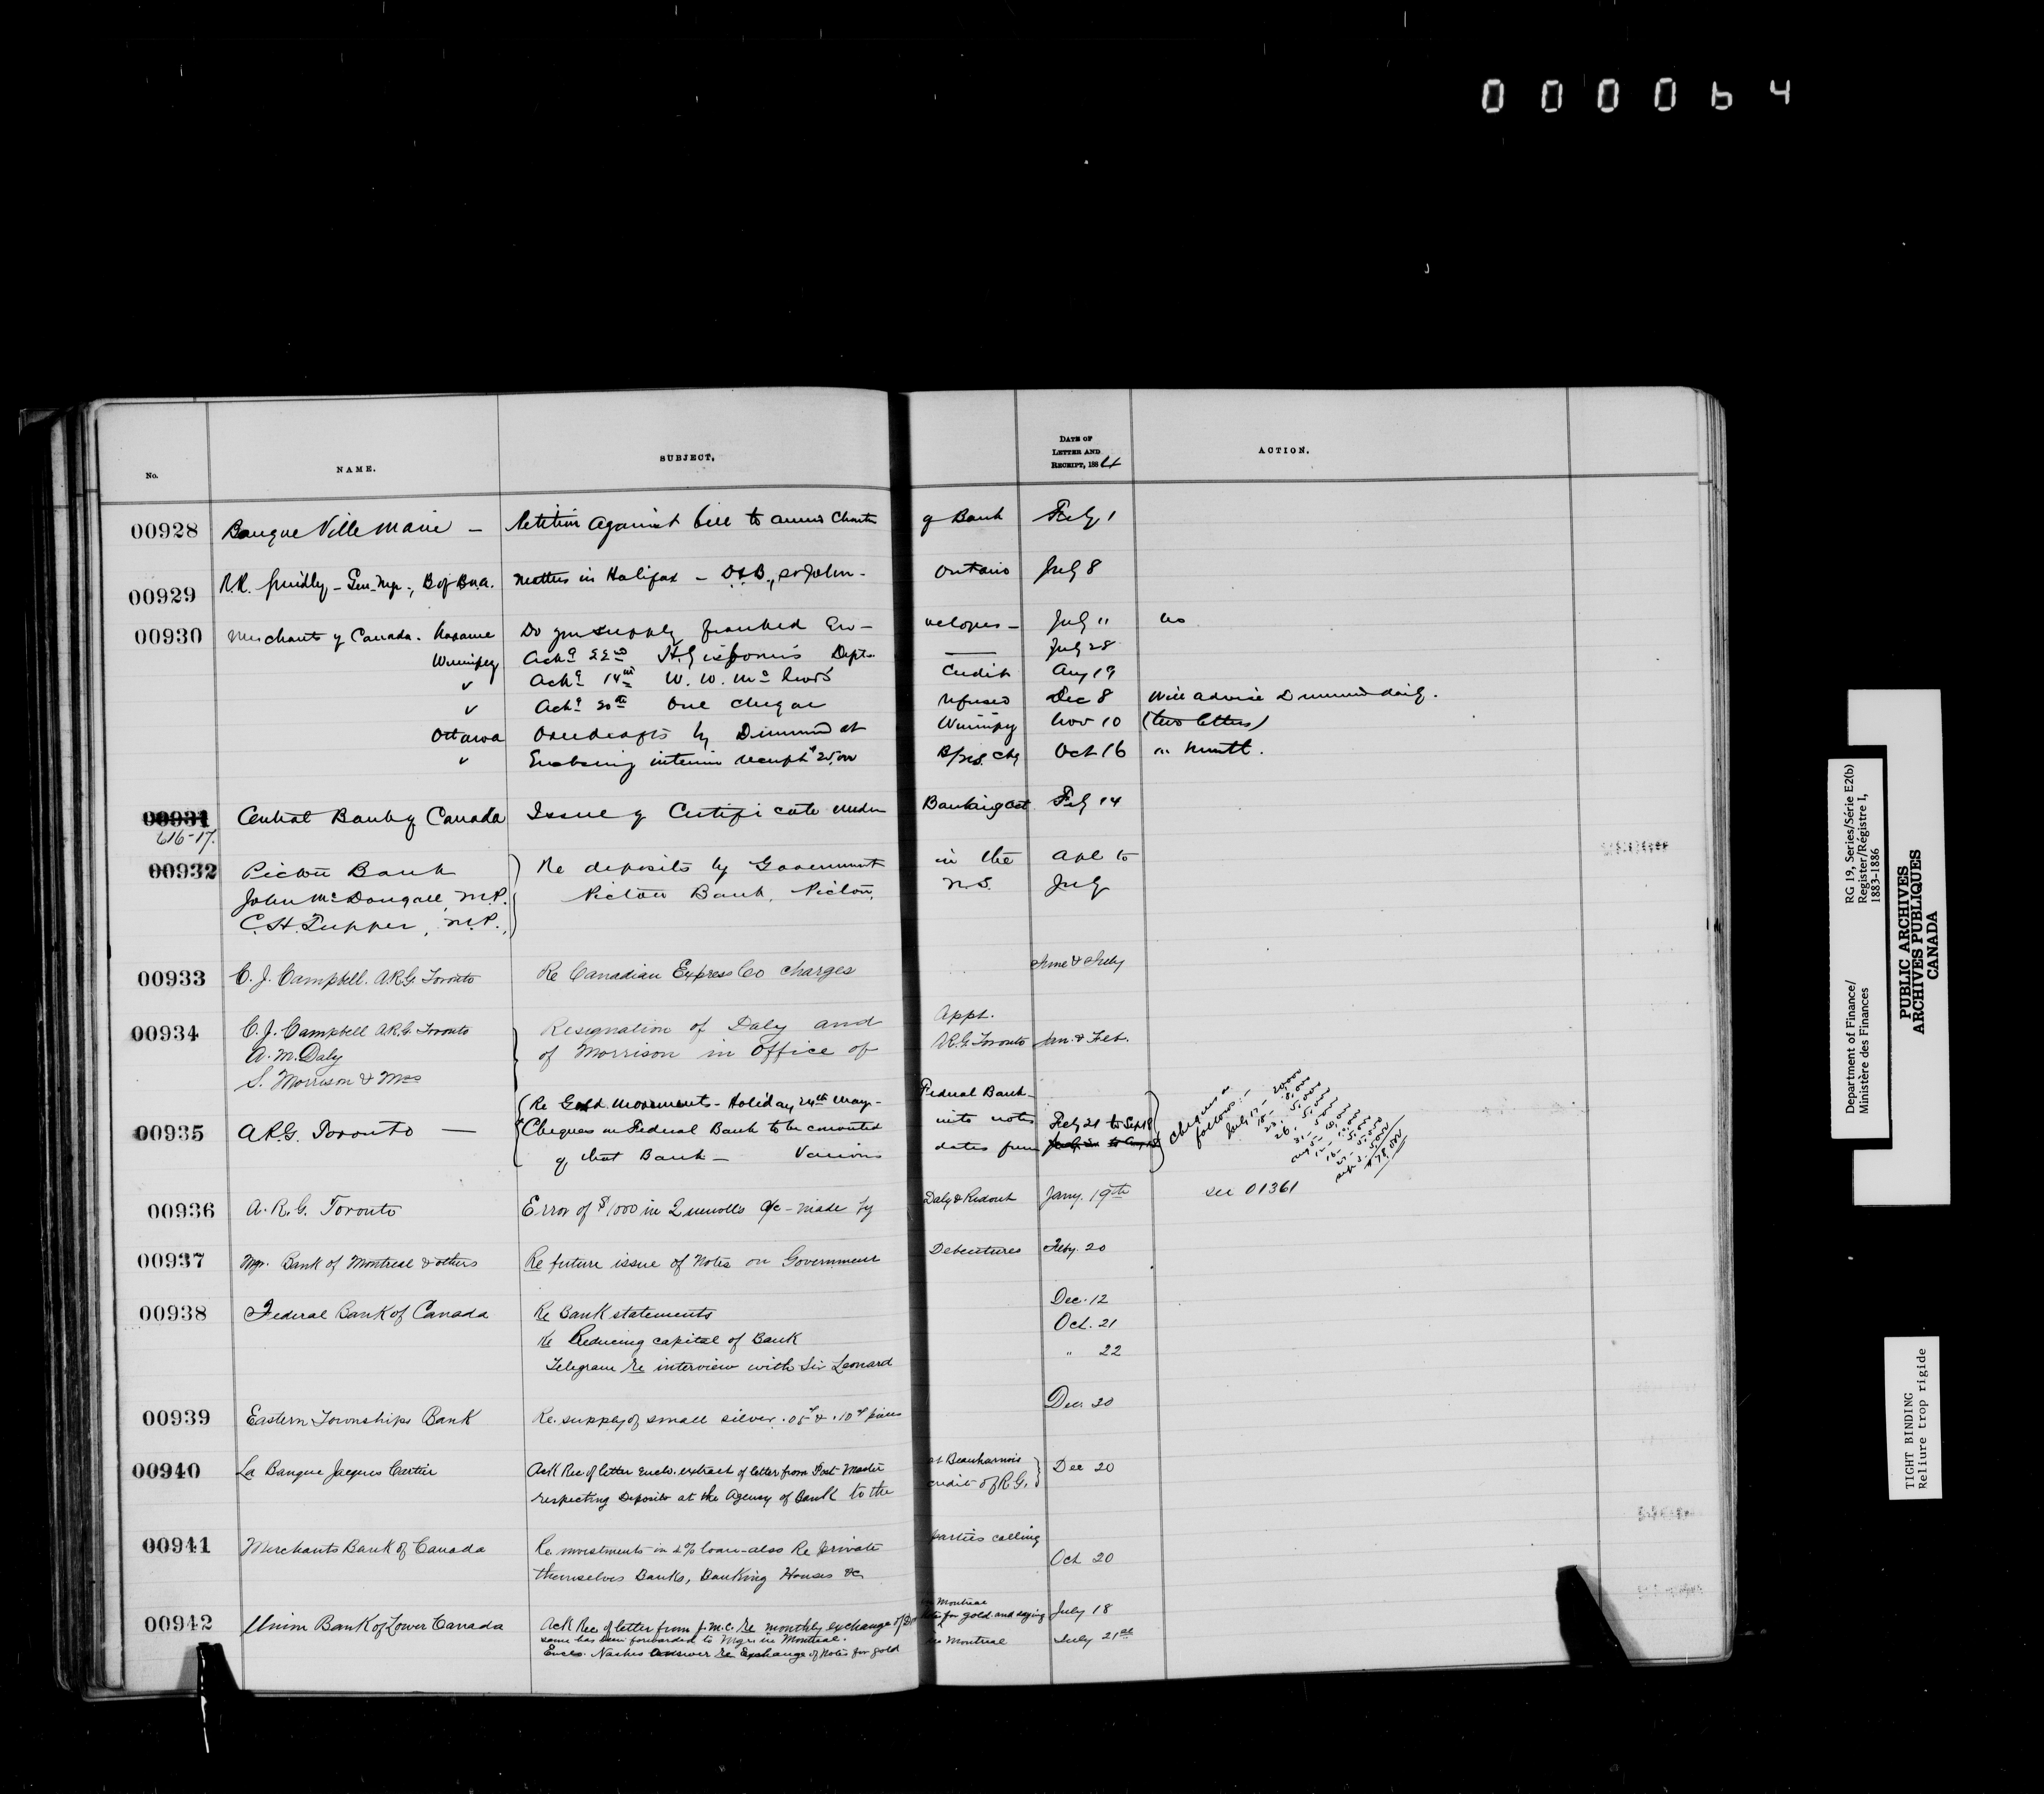 000064
No.
NAME.
SUBJECT,
DATE OF
LETTER AND
RECEIPT, 1884
ACTION.
00928 Banque Ville Marie — Petition against bill to amend Charter of Bank Feby 1
00929 R.R. Grindley - Gen. Mgr., B of B.N.A. Matters in Halifax - St John - Ontario July 8
00930 Merchants of Canada. Napanee Do you supply franked En- velopes - July 11 No
Winnipeg Ackg 22nd H. Gisborne's Dept. — July 28
✓ Ackg 14th W. W. Credit Aug 19
✓ Ackg 30th One cheque refused Dec 8 Will advise daily.
Ottawa Overdrafts by at Winnipeg Nov 10 (two letters)
✓ Enclosing interim receipt Oct 16
00931 Central Bank of Canada Issue of Certificate under Banking Act Feby 14
616-17.
00932 Pictou Bank Re deposits by Government in the Apl to
John McDougall, M.P. Pictou Bank, Pictou, N.S. July
C.H. Tupper, M.P.,
00933 C. J. Campbell. A.R.G. Toronto Re Canadian Express Co charges June & July
00934 C. J. Campbell A.R.G. Toronto Resignation of Daly and Appt.
A. M. Daly of Morrison in Office of A.R.G. Toronto Jan. & Feb.
S. Morrison &
Re Gold movements - Holiday 24th May - Federal Bank -
00935 A.R.G. Toronto — Cheques on Federal Bank to be converted into notes Feby 21 to Sep 18
of that Bank — Various dates from
Cheques as
follows:-
July 17 - 20,000
00936 A. R. G. Toronto Error of $1000 in a/c - made by Daly & Ridout Jany. 19th see 01361
00937 Mgr. Bank of Montreal & others Re future issue of Notes on Government Debentures Feby. 20
00938 Federal Bank of Canada Re Bank statements Dec. 12
Re Reducing capital of Bank Oct. 21
Telegram re interview with Sir Leonard " 22
00939 Eastern Townships Bank Re. supply of small silver .05c & .10c pieces Dec. 20
00940 La Banque Jacques Cartier Ack Rec of letter enclo. extract of letter from Post Master at Beauharnois Dec 20
respecting Deposits at the Agency of Bank to the credit of R.G.
00941 Merchants Bank of Canada Re investments in 4% loan - also Re private parties calling
themselves Banks, Banking Houses &c Oct 20
00942 Union Bank of Lower Canada Ack Rec of letter from J.M.C. re monthly exchange of Dom notes for gold and saying July 18
same has been forwarded to Mgr in Montreal.
Enclo. Nashes answer re Exchange of Notes for gold in Montreal July 21st
RG 19, Series/Série E2(b)
Register/Régistre 1,
1883-1886
Department of Finance/
Ministère des Finances
PUBLIC ARCHIVES
ARCHIVES PUBLIQUES
CANADA
TIGHT BINDING
Reliure trop rigide